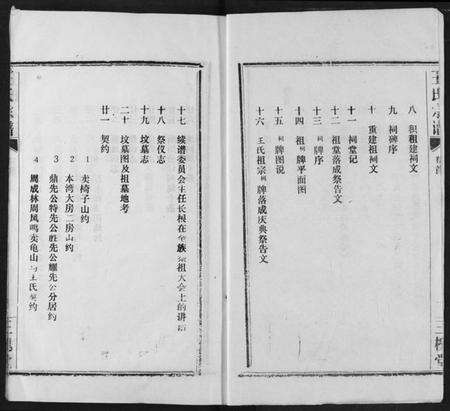 王氏宗谱
八 积租建祠文
九 祠碑序
十 重建祖祠文
十一 祠堂记
十二 祖堂落成祭告文
十三 祠牌序
十四 祖牌平面图
十五 祠牌图说
十六 王氏祖宗祠牌落成庆典祭告文
三槐堂
十七 续谱委员会主任长根在全族祭祖大会上的讲话
十八 祭仪志
十九 坟墓志
二十 坟墓图及祖墓地考
廿一 契约
1 卖椅子山约
2 本湾大房二房山约
3 鼎先公特先公胜先公耀先公分居约
4 周成林周凤鸣卖龟山与王氏契约
三槐堂